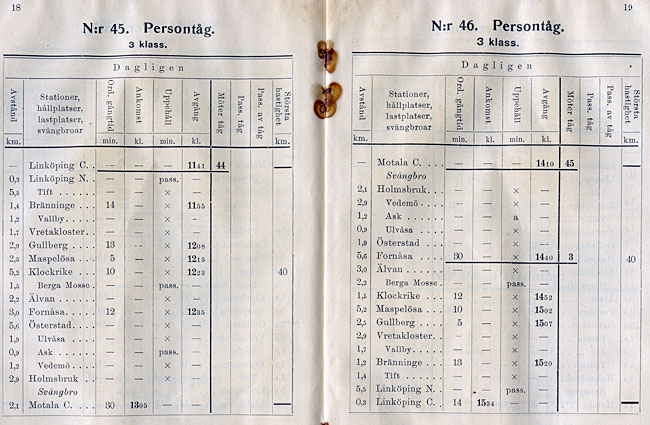 18
N:r 45. Persontåg.
3 klass.
Dagligen
Avstånd km. | Stationer, hållplatser, lastplatser, svängbroar | Ord. gångtid min. | Ankomst kl. | Uppehåll min. | Avgång kl. | Möter tåg | Pass. tåg | Pass. av tåg | Största hastighet km.
— Linköping C. . — — — 1141 44 —
0,3 Linköping N. . — — pass. — —
5,5 Tift . . . . — — × — —
1,4 Bränninge . . . 14 — × 1155 —
1,2 Vallby . . . . . — — × — —
1,7 Vretakloster . . — — × — —
2,9 Gullberg . . . . 13 — × 1208 —
2,5 Maspelösa . . . 5 — × 1213 —
5,2 Klockrike . . . 10 — × 1223 — 40
1,5 Berga Mosse . — — pass. — —
2,2 Älvan . . . . . — — × — —
3,0 Fornåsa . . . . 12 — × 1235 —
5,6 Österstad . . . — — × — —
1,9 Ulvåsa . . . — — × — —
0,9 Ask . . . . . — — pass. — —
1,2 Vedemö . . . — — × — —
2,9 Holmsbruk . . — — × — —
Svängbro
2,1 Motala C. . . . 30 1305 — — — —
19
N:r 46. Persontåg.
3 klass.
Dagligen
Avstånd km. | Stationer, hållplatser, lastplatser, svängbroar | Ord. gångtid min. | Ankomst kl. | Uppehåll min. | Avgång kl. | Möter tåg | Pass. tåg | Pass. av tåg | Största hastighet km.
— Motala C. . . — — — 1410 45 —
Svängbro
2,1 Holmsbruk . . — — × — —
2,9 Vedemö . . . — — × — —
1,2 Ask . . . . . — — a — —
0,9 Ulvåsa . . . — — × — —
1,9 Österstad . . . — — × — —
5,6 Fornåsa . . . . 30 — × 1440 3 40
3,0 Älvan . . . . . — — × — —
2,2 Berga Mosse . — — pass. — —
1,5 Klockrike . . . 12 — × 1452 —
5,2 Maspelösa . . . 10 — × 1502 —
2,5 Gullberg . . . . 5 — × 1507 —
2,9 Vretakloster . — — × — —
1,7 Vallby . . . . . — — × — —
1,2 Bränninge . . . 13 — × 1520 —
1,4 Tift . . . . — — × — —
5,5 Linköping N. . — — pass. — —
0,3 Linköping C. . 14 1534 — — — —